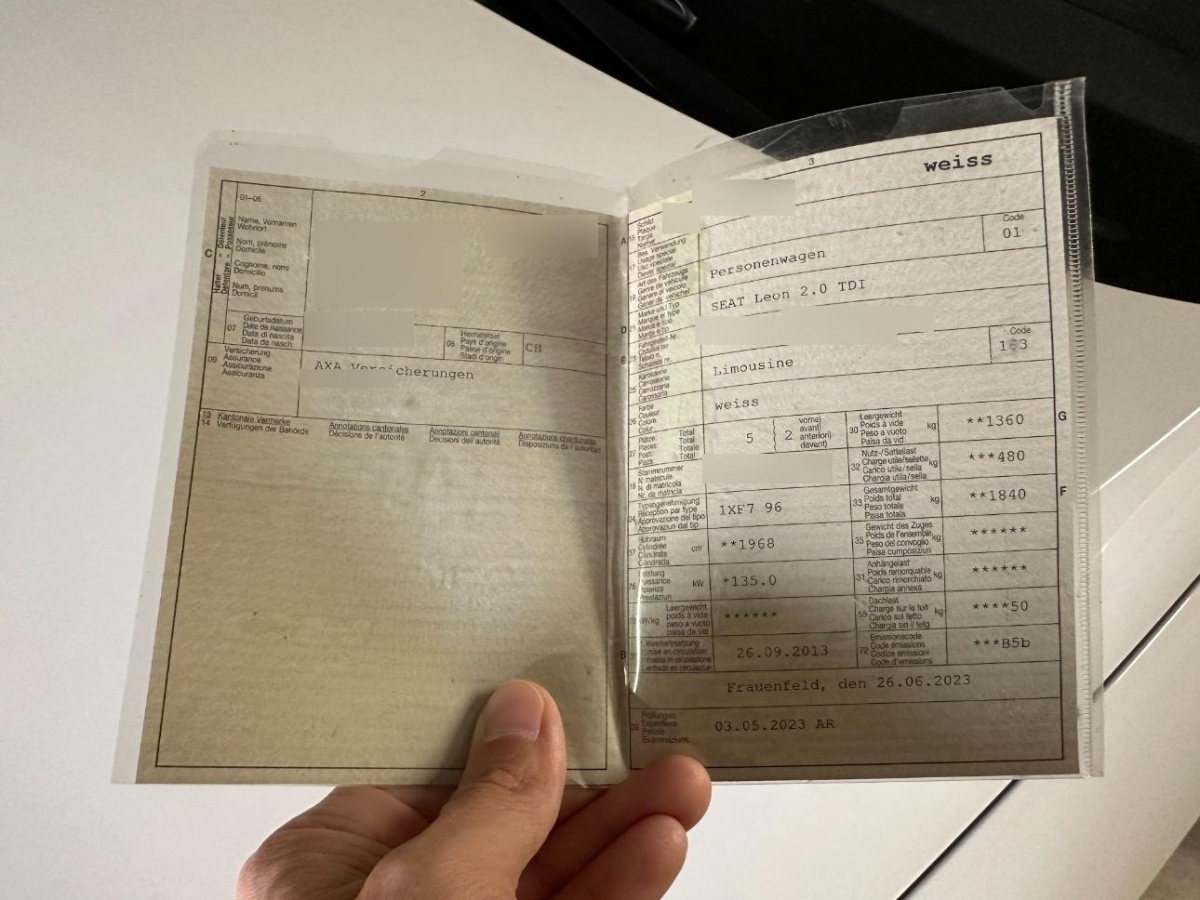 2
01-06
Name, Vornamen
Wohnort
Nom, prénoms
Domicile
Cognome, nomi
Domicilio
Num, prenums
Domicil
C
Halter
Détenteur
Detentore
Possessur
07
Geburtsdatum
Date de naissance
Data di nascita
Data da nasch.
08
Heimatstaat
Pays d'origine
Paese d'origine
Stadi d'origin
CH
09
Versicherung
Assurance
Assicurazione
Assicuranza
AXA Versicherungen
13
14
Kantonale Vermerke
Verfügungen der Behörde
Annotations cantonales
Décisions de l'autorité
Annotazioni cantonali
Decisioni dell'autorità
Annotaziuns chantunalas
Disposiziuns da l'autoritad
3
weiss
A
Schild
Plaque
Targa
Numer
Bes. Verwendung
Usage spécial
Uso speciale
Diever spezial
Code
01
Art des Fahrzeugs
Genre de véhicule
Genere di veicolo
Gener da vehichel
Personenwagen
D
Marke und Typ
Marque et type
Marca e tipo
Marca e tip
SEAT Leon 2.0 TDI
E
Fahrgestell-Nr.
Châssis no
Telaio n.
Schassis nr.
Code
Karosserie
Carrosserie
Carrozzeria
Carossaria
Limousine
Farbe
Couleur
Colore
Colur
weiss
Plätze: Total
Places: Total
Posti: Totale
Plazs: Total
5
2
vorne)
avant)
anteriori)
davant)
30
Leergewicht
Poids à vide
Peso a vuoto
Paisa da vid
kg
**1360
G
Stammnummer
N° matricule
N. di matricola
Nr. da matricla
32
Nutz-/Sattellast
Charge utile/sellette
Carico utile/sella
Chargia utila/sella
kg
***480
Typengenehmigung
Réception par type
Approvazione del tipo
Approvaziun dal tip
1XF7 96
33
Gesamtgewicht
Poids total
Peso totale
Paisa totala
kg
**1840
F
Hubraum
Cylindrée
Cilindrata
Cilindrada
cm³
**1968
35
Gewicht des Zuges
Poids de l'ensemble
Peso del convoglio
Paisa cumposiziun
kg
******
Leistung
Puissance
Potenza
Prestaziun
kW
*135.0
31
Anhängelast
Poids remorquable
Carico rimorchiato
Chargia annexa
kg
******
kW/kg
Leergewicht
poids à vide
peso a vuoto
paisa da vid
******
55
Dachlast
Charge sur le toit
Carico sul tetto
Chargia sin il tetg
kg
****50
B
1. Inverkehrsetzung
1re mise en circulation
1a messa in circolazione
1. entrada en circulaziun
26.09.2013
72
Emissionscode
Code émissions
Codice emissioni
Code d'emissiuns
***B5b
Frauenfeld, den 26.06.2023
Prüfungen
Expertises
Perizie
Examinaziuns
03.05.2023 AR